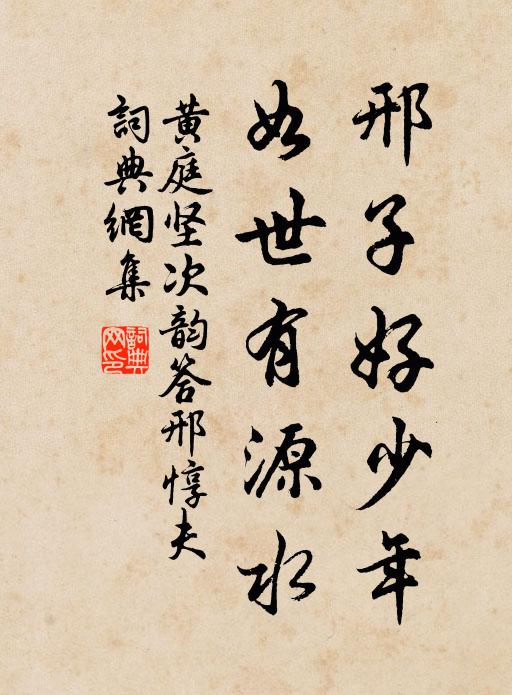 邢子好少年
如世有源水
黄庭坚次韵答邢惇夫
詞典網集
詞典
网印